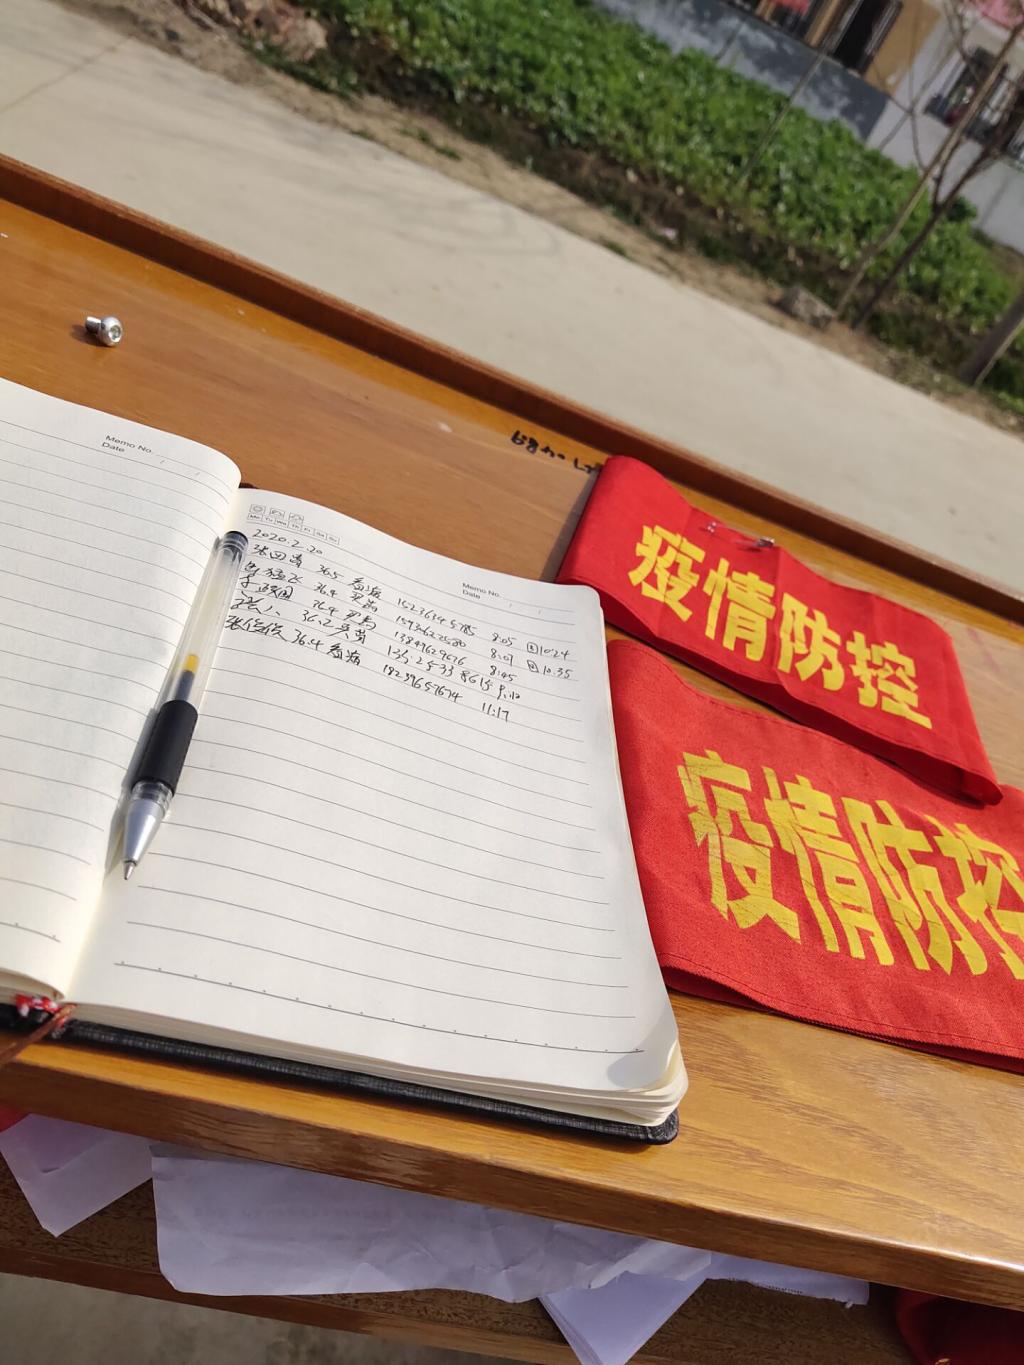 Memo No.
Date
Mo Tu We Th Fr Sa Su
Memo No.
Date
2020.2.20
36.5 看病 15236145785 8:05 回10:24
36.4 买药 8:07 回10:35
36.4 买药 13849629676 8:45
36.2 买药 9:12
张俊俊 36.4 看病 18239657674 11:17
疫情防控
疫情防控